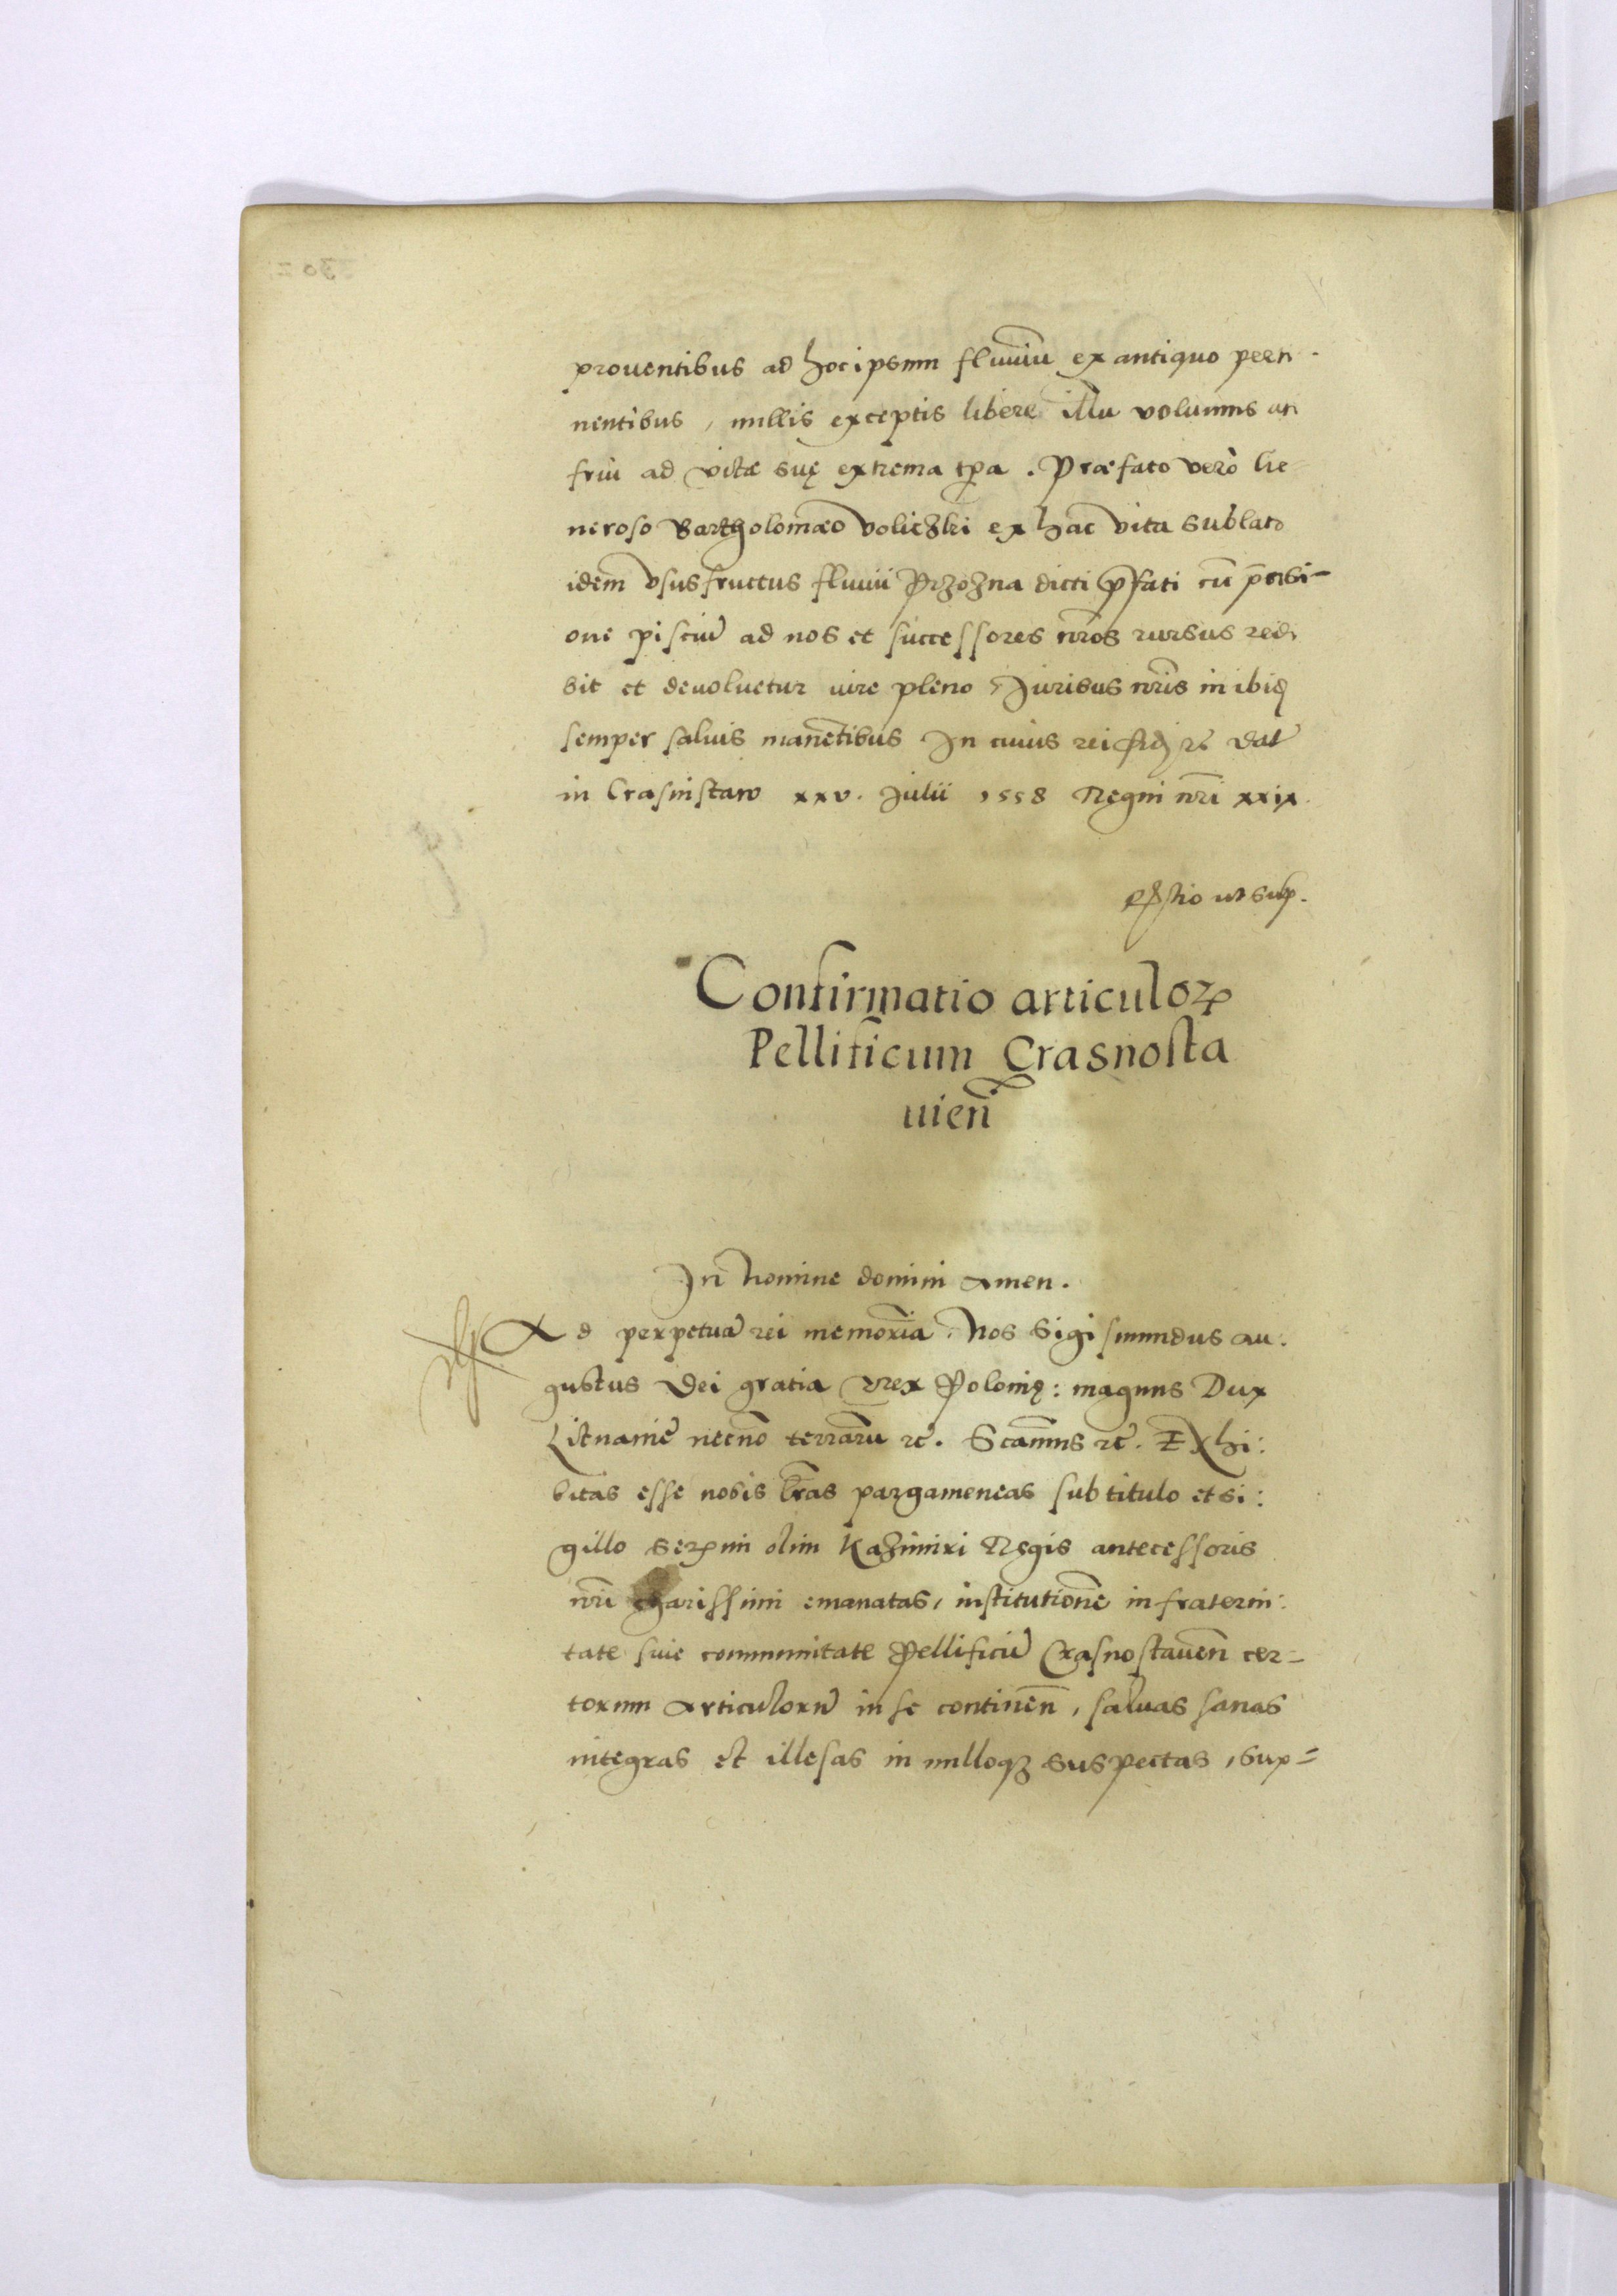 prouentibus ad hoc ipsum fluuiũ ex antiquo perti-
nentibus, nullis exceptis libere illũ volumus ac
frui ad vitæ suę extrema tp̃a. Præfato verò Ge
neroso Bartholomæo Voliczki ex hac vita sublato
idem vsusfructus fluuii Przozna dicti p̃fati cũ
one pisciũ ad nos et successores nr̃os rursus redi
bit et deuoluetur iure pleno Juribus nr̃is in ibidẽ
semper saluis manẽtibus In cuius rei fidẽ ꝛc̃ dat̃
in Crasnistaw xxv. Julii 1558 Regni nr̃i xxix.
ut sup.
Confirmatio articuloꝝ
Pellificum Crasnosta
uieñ
In Nomine domini Amen.
Ad perpetuã rei memoriã. Nos Sigismundus au:
gustus Dei gratia Rex Polonię: magnus Dux
Lituaniẽ necnõ terrarũ ꝛc̃. S ꝛc̃. Exhi:
bitas esse nobis lr̃as pargameneas sub titulo et si:
gillo Serᵐⁱ olim Kazimiri Regis antecessoris
nr̃i charissimi emanatas, institutionẽ in fraterni:
tate siue communitate Pellificũ Crasnostaueñ cer=
torum Articulorũ in se contineñ, saluas sanas
integras et illesas in nulloqꝫ suspectas, Sup=